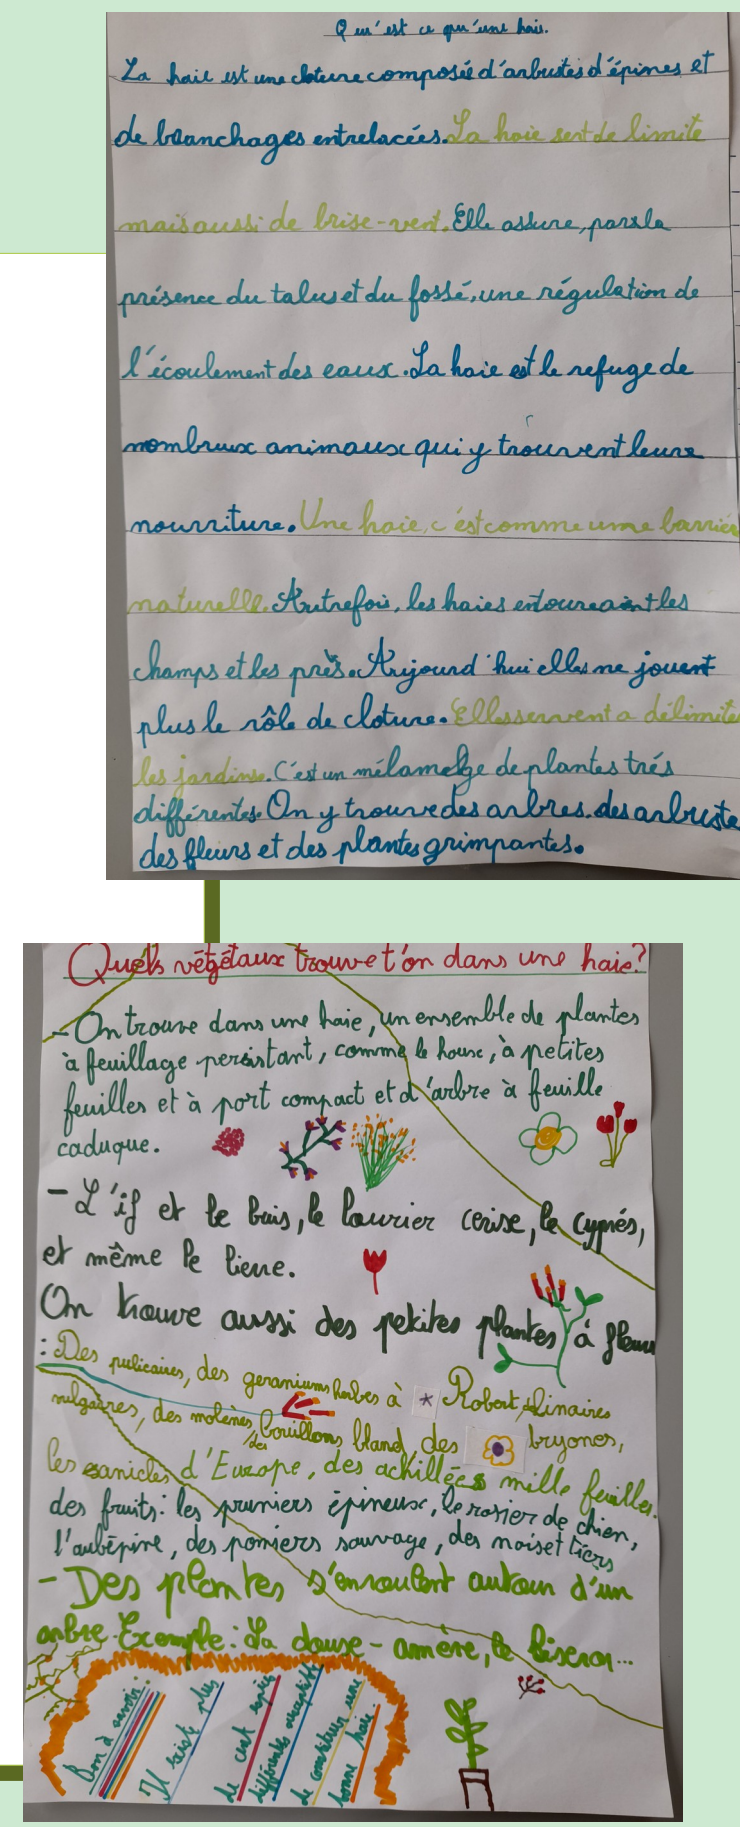 Qu'est ce qu'une haie.
La haie est une cloture composée d'arbustes d'épines et
de branchages entrelacées. La haie sert de limite
mais aussi de brise-vent. Elle assure, par la
présence du talus et du fossé, une régulation de
l'écoulement des eaux. La haie est le refuge de
nombreux animaux qui y trouvent leurs
nourriture. Une haie, c'est comme une barrière
naturelle. Autrefois, les haies entouraient les
champs et les près. Aujourd'hui elles ne jouent
plus le rôle de cloture. Elles servent a délimiter
les jardins. C'est un mélange de plantes trés
différentes. On y trouve des arbres. des arbuste
des fleurs et des plantes grimpantes.
Quels végétaux trouve t'on dans une haie?
- On trouve dans une haie, un ensemble de plantes
à feuillage persistant, comme le houx, à petites
feuilles et à port compact et d'arbre à feuille
caduque.
- L'if et le buis, le laurier cerise, le cyprés,
et même le lierre.
On trouve aussi des petites plantes à fleurs
: Des pulicaires, des geraniums herbes à * Robert, linaires
vulgaires, des molènes, des bouillons bland, des bryones,
les sanicles d'Europe, des achillées mille feuilles.
des fruits: les pruniers épineux, le rosier de chien,
l'aubépine, des pomiers sauvage, des noisetiers
- Des plantes s'enroulent autour d'un
arbre. Exemple: La douse-amère, le liseron...
Bon à savoir:
Il existe plus
de cent espèces
différentes susceptibles
de constituer une
bonne haie.